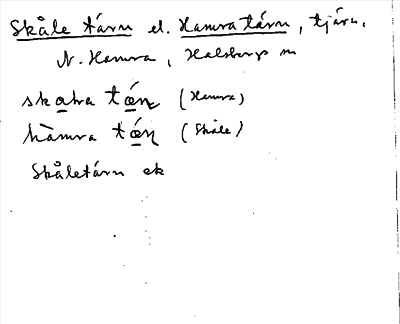 Skåle tärn el. Hamra tärn, tjärn.
N. Hamra, Halsbergs sn
skaḷra tǽṇ (Hamra)
hàmra tǽṇ (Skåle)
Skåletärn ek